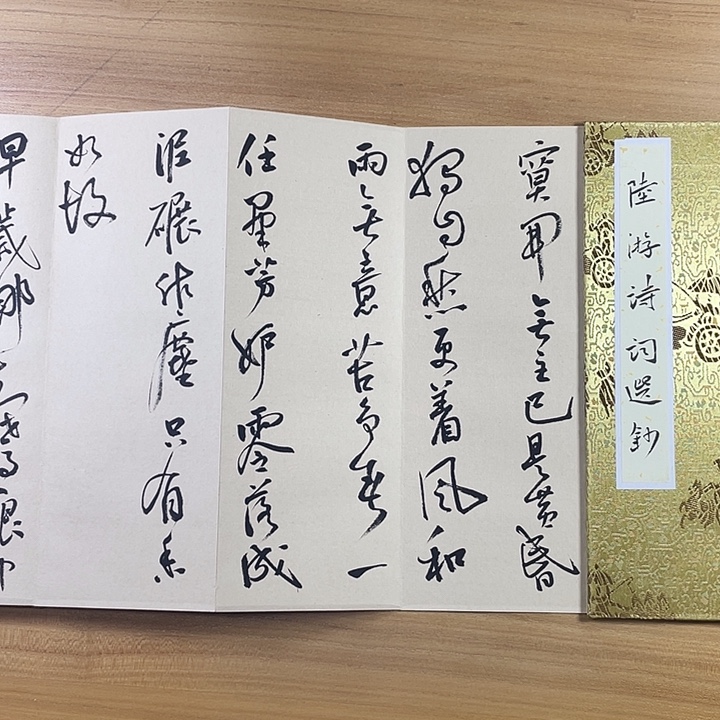 陸游詩詞選鈔
寞開無主已是黃昏
獨自愁更著風和
雨無意苦爭春一
任羣芳妒零落成
泥碾作塵只有香
如故
早歲那知世事艱中